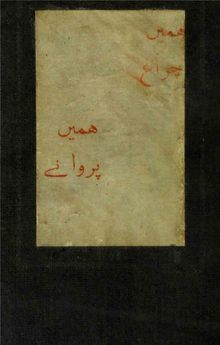 ہمیں
چراغ
ہمیں
پروانے